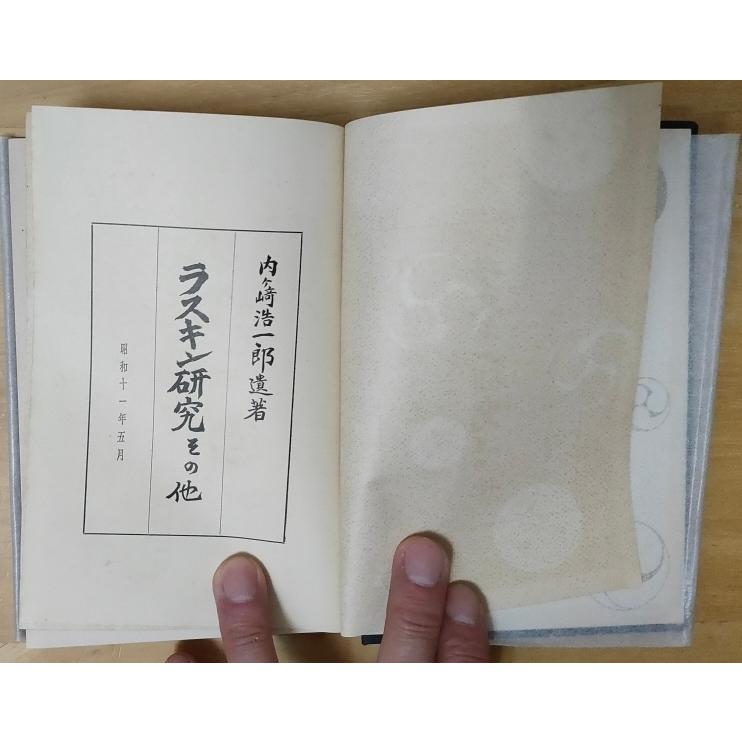 内ヶ崎浩一郎遺著
ラスキン研究その他
昭和十一年五月